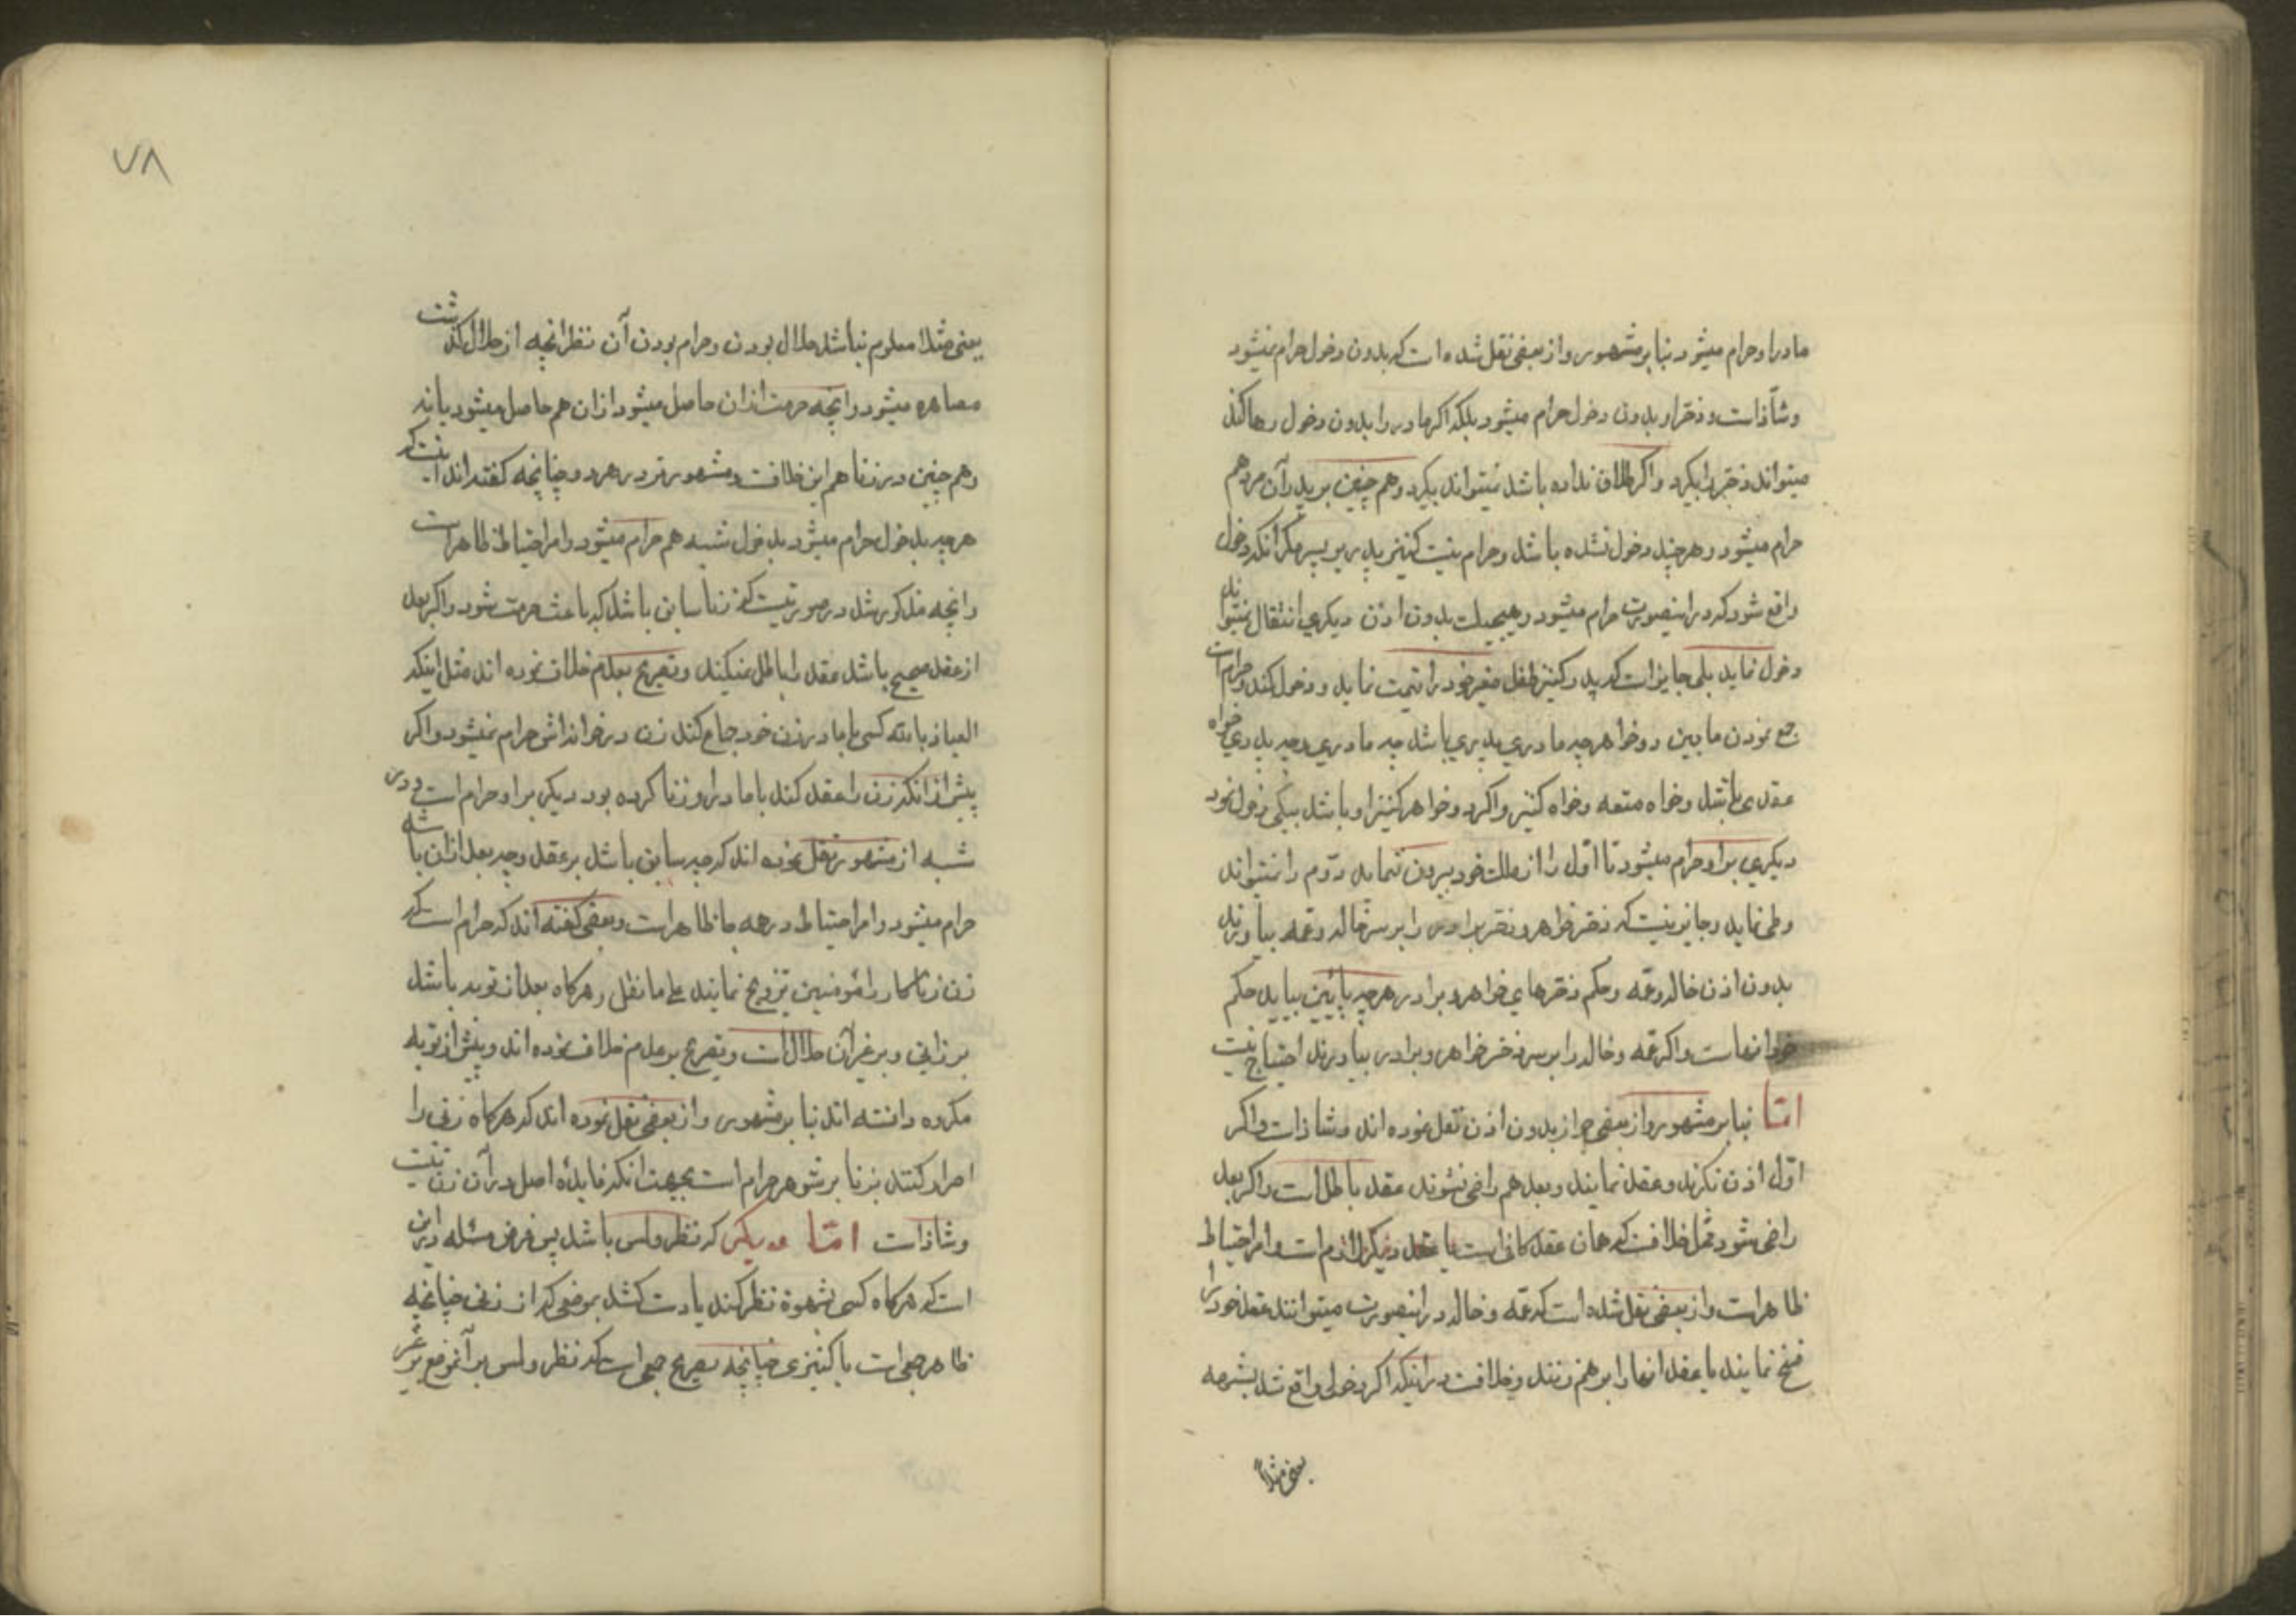 مادر او حرام میشود بنابر مشهور و از بعضی نقل شده است که بدون دخول حرام نمیشود
و شاذ است و دختر او بدون دخول حرام میشود بلکه اکر مادر را بدون دخول رها کند
میتواند دختر را بکیرد و اکر طلاق نداده باشد نمیتواند بکیرد و همچنین بر پدر آن مرد هم
حرام میشود و هر چند دخول نشده باشد و حرام نیست کنیز پدر بر پسر مکر آنکه دخول
واقع شود که در اینصورت حرام میشود و هیچیک بدون اذن دیکری انتقال نمیتواند
دخول نماید بلی جایز است که پدر کنیز طفل صغیر خود را قیمت نماید و دخول کند و حرام است
جمع نمودن مابین دو خواهر چه مادری پدری باشد چه مادری و چه پدری خواه
عقدی باشد و خواه متعه و خواه کنیز و اکر دو خواهر کنیز او باشد بیکی دخول نمود
دیکری بر او حرام میشود تا اول را از ملک خود بیرون ننماید دوم را نمیتواند
وطی نماید و جایز نیست که دختر خواهر و دختر برادر را بر سر خاله و عمه بیاورند
بدون اذن خاله و عمه و حکم دخترهای خواهر و برادر هر چه پائین بیاید حکم
خود آنها است و اکر عمه و خاله را بر سر دختر خواهر و برادر بیاورند احتیاج نیست
امّا بنابر مشهور و از بعضی جواز بدون اذن نقل نموده اند و شاذ است و اکر
اول اذن نکیرند و عقد نمایند و بعد هم راضی نشوند عقد باطل است و اکر بعد
راضی شود محل خلافست که همان عقد کافی است یا عقد دیکر لازم است و امر احتیاط
ظاهر است و از بعضی نقل شده است که عمه و خاله در اینصورت میتوانند عقد خود را
فسخ نمایند یا عقد آنها را بر هم زنند و خلافست در اینکه اکر دخولی واقع شد بشبهه
یعنی مثلاً
٧٨
یعنی مثلا معلوم نباشد حلال بودن و حرام بودن آن نظر آنچه از حلال کذشت
مصاهره میشود و آنچه حرمت از آن حاصل میشود از آن هم حاصل میشود یا نه
و هم چنین در زنا هم این خلافست و مشهور تر در هر دو چنانچه کفته اند آنست که
هر چه بدخول حرام میشود بدخول شبهه هم حرام میشود و امر احتیاط ظاهر است
و آنچه مذکور شد در صورتیست که زنا سابق باشد که باعث حرمت شود و اکر بعد
از عقد صحیح باشد عقد را باطل نمیکند و تصریح بعدم خلاف نموده اند مثل اینکه
العیاذ بالله کسی با مادر زن خود جماع کند زن در خانه اش حرام نمیشود و اکر
پیش از آنکه زن را عقد کند با مادر او زنا کرده بود دیکر بر او حرام است و در
شبه از مشهور نقل نموده اند که چه سابق باشد بر عقد و چه بعد از آن باشد
حرام میشود و امر احتیاط در همه جا ظاهر است و بعضی کفته اند که حرام است که
زن زناکار را مؤمنین تزویج نمایند علی ما نقل و هرکاه بعد از توبه باشد
بر زانی و بر غیر آن حلال است و تصریح بر عدم خلاف نموده اند و پیش از توبه
مکروه دانسته اند بنابر مشهور و از بعضی نقل نموده اند که هرکاه زنی را
اصرار کنند بزنا بر شوهر حرام است بجهت آنکه فایده اصل در آن زن نیست
و شاذ است امّا دیکر که نظر و لمس باشد پس فرض مسئله در این
است که هرکاه کسی بشهوة نظر کند یا دست کشد بموضعی که از زنی چنانچه
ظاهر جمعی است یا کنیزی چنانچه تصریح جمعی است که نظر و لمس بر آنموضع بر غیر